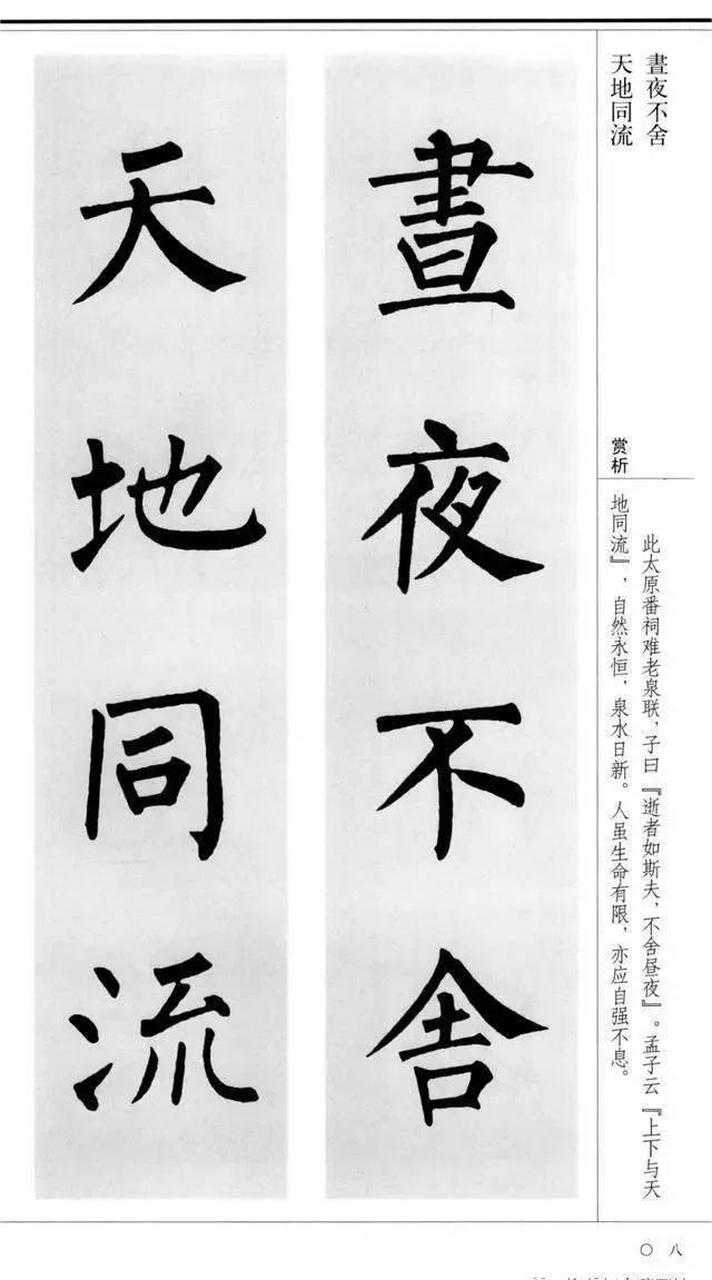 晝夜不舍
天地同流
晝夜不舍
天地同流
赏析
此太原番祠难老泉联，子曰『逝者如斯夫，不舍昼夜』。孟子云『上下与天
地同流』，自然永恒，泉水日新。人虽生命有限，亦应自强不息。
〇八